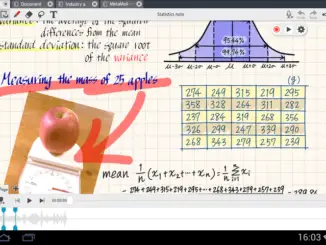 Document
Industry a
MetaMoJi
Statistics note
variance: The average of the squared
differences from the mean
standard deviation: the square root
of the variance
95.44%
99.74%
μ-3σ μ-2σ μ-σ μ μ+σ μ+2σ μ+3σ
Measuring the mass of 25 apples
(g)
274 249 315 219 295
358 328 264 311 282
237 284 319 268 356
326 299 247 339 290
268 343 279 257 239
mean 1/n (x₁+x₂+⋯+xₙ) = 1/n Σxᵢ
274+249+315+219+295+⋯+268+343+279+257+239
16:03